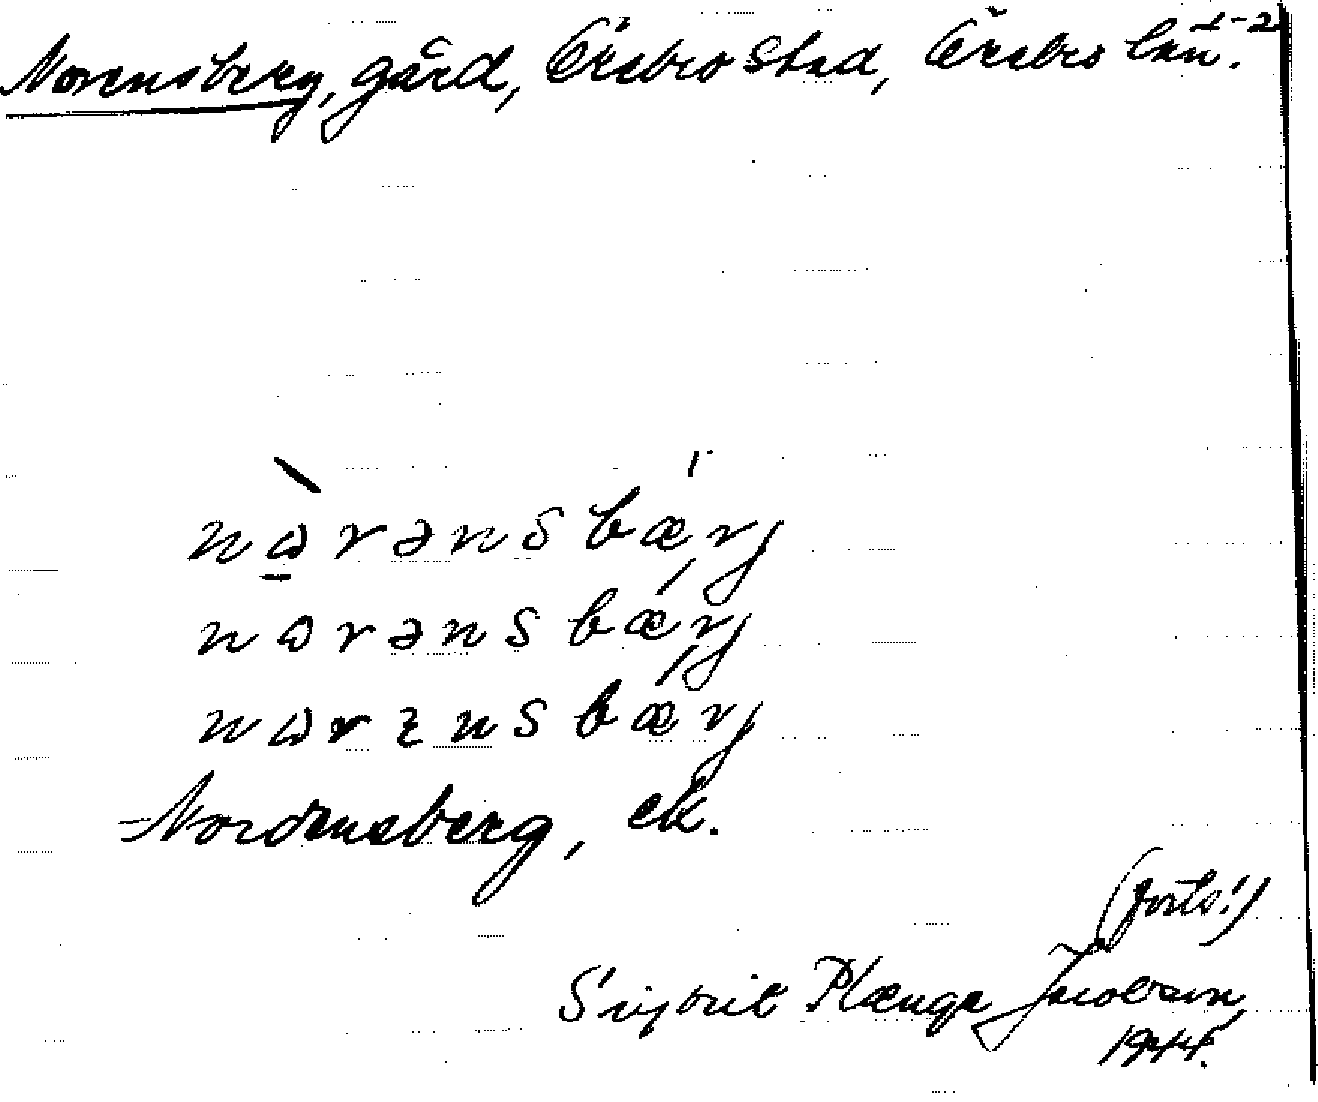 Norensberg, gård, Örebro stad, Örebro län. 1-2
nɷ̀rənsbærj
nɷrənsbǽrj
nɷrɛnsbǽrj
Nordensberg, ek.
(forts.!)
Sigbrit Plænge Jacobson,
1944.